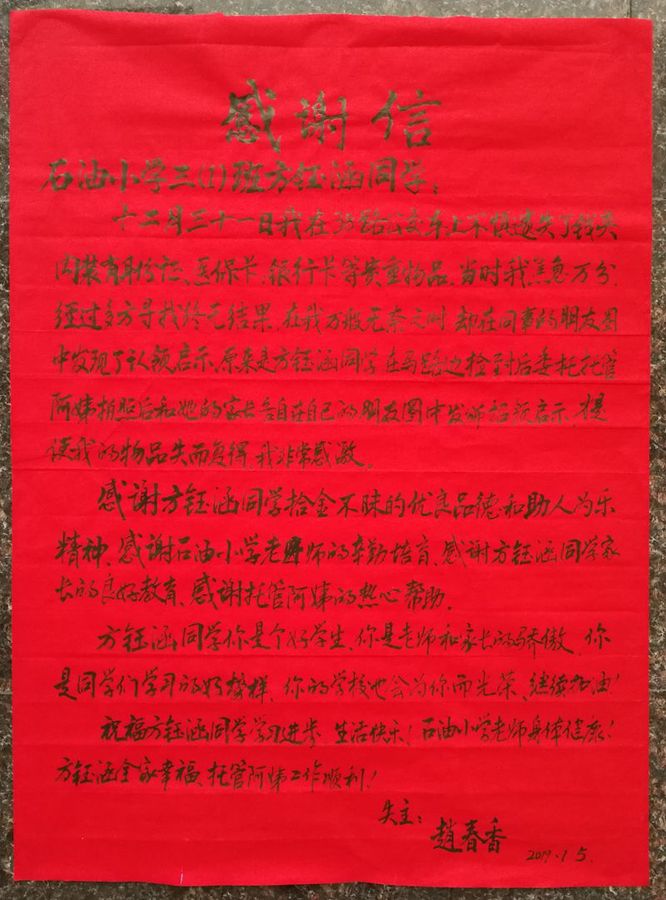 感谢信
石油小学三(1)班方钰涵同学:
十二月三十一日我在 路公交车上不慎遗失了钱夹
内装有身份证、医保卡、银行卡等贵重物品。当时我焦急万分.
经过多方寻找终无结果。在我万般无奈之时 却在同事的朋友圈
中发现了认领启示、原来是方钰涵同学在马路边捡到后委托托管
阿姨拍照后和她的家长各自在自己的朋友圈中发布招领启示、
我的物品失而复得、我非常感激。
感谢方钰涵同学拾金不昧的优良品德和助人为乐
精神、感谢石油小学老师的辛勤培育、感谢方钰涵同学家
长的良好教育、感谢托管阿姨的热心帮助.
方钰涵同学你是个好学生、你是老师和家长的骄傲、你
是同学们学习的好榜样、你的学校也会为你而光荣、继续加油!
祝福方钰涵同学学习进步 生活快乐!石油小学老师身体健康!
方钰涵全家幸福、托管阿姨工作顺利!
失主:
赵春香
2019.1.5.